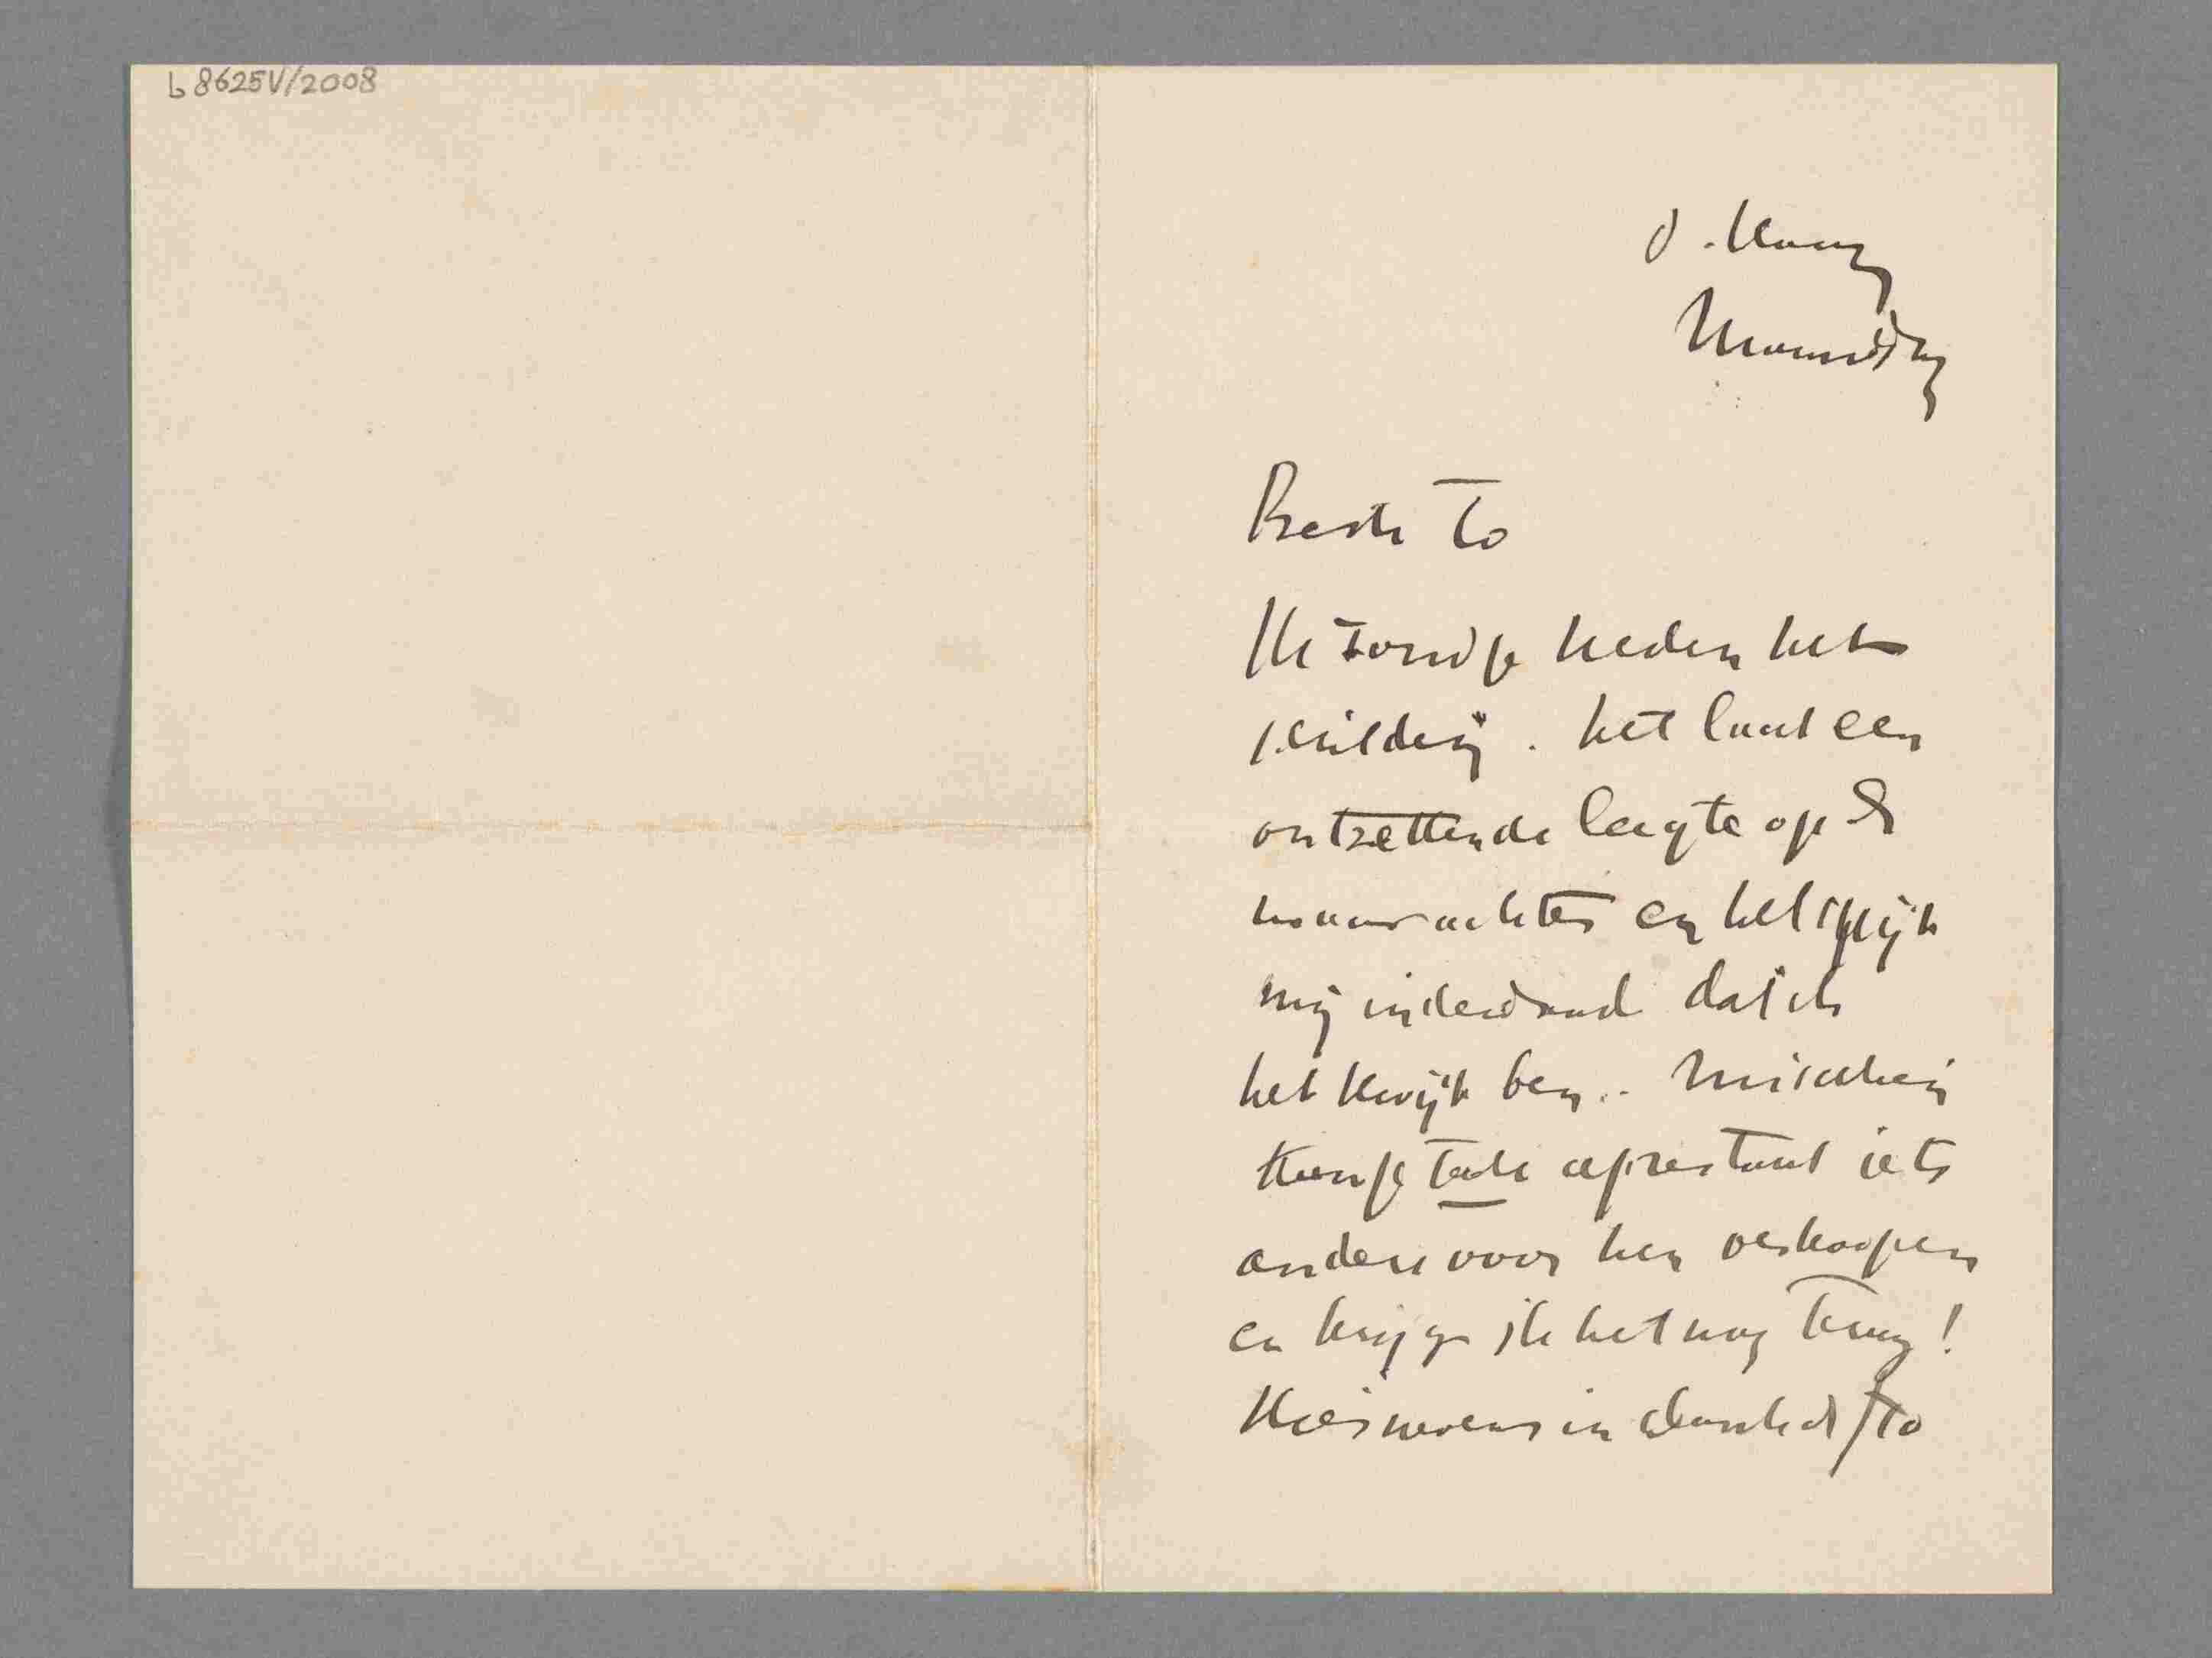 b 8625V/2008
d. Haag
Maandag
Beste To
Ik zond je heden het
schilderij. het laat een
ontzettende leegte op de
muur achter en het spijt
mij inderdaad dat ik
het kwijt ben.. Misschien
kun je Tade iets
anders voor hen verkoopen
en krijg ik het nog terug!
Hiernevens in dank de f